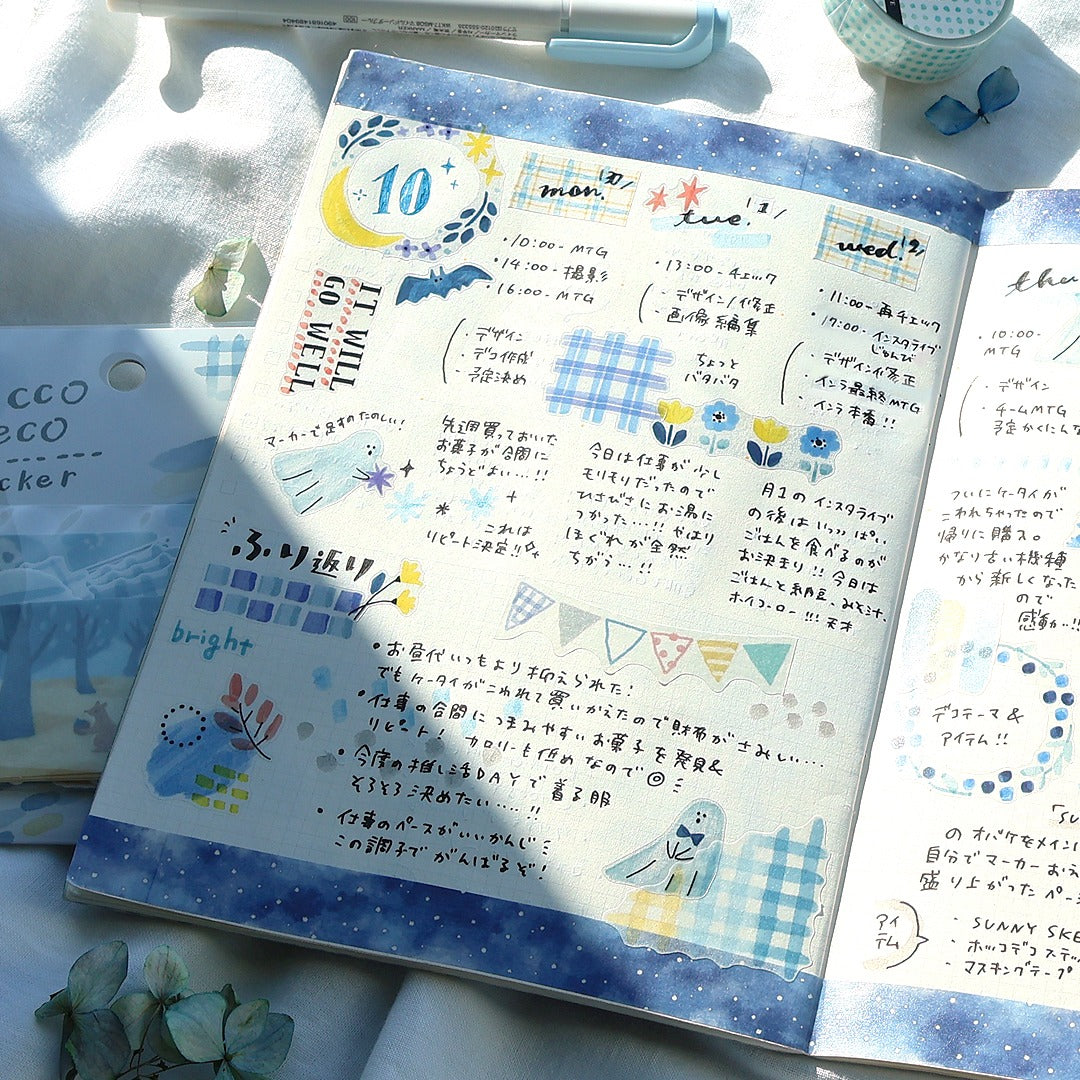 10
IT WILL
GO WELL
mon. 30/
・10:00- MTG
・14:00- 撮影
・16:00- MTG
・デザイン
・デコ作成
・予定決め
先週買っておいた
お菓子が合間に
ちょうどよい…!!
これは
リピート決定!!
マーカーで足すのたのしい!
tue. 1/
・13:00- チェック
・デザイン/修正
・画像編集
ちょっと
バタバタ
今日は仕事が少し
モリモリだったので
ひさびさにお湯に
つかった…!! やはり
ほぐれが全然
ちがう…!!
wed. 2/
・11:00- 再チェック
・17:00- インスタライブ
じゅんび
・デザイン/修正
・インラ最終MTG
・インラ本番!!
月1のインスタライブ
の後はいっっぱい
ごはんを食べるのが
お決まり!! 今日は
ごはんと納豆、みそ汁、
ホイコーロー!!! 天才
ふり返り
bright
・お昼代いつもより抑えられた!
でもケータイがこわれて買いかえたので財布がさみしい…
・仕事の合間につまみやすいお菓子を発見&
リピート! カロリーも低めなので◎
・今度の推し活DAYで着る服
そろそろ決めたい….!!
・仕事のペースがいいかんじ
この調子でがんばるぞ!
・10:00-
MTG
・デザイン
・チームMTG
予定かくにん
ついにケータイが
こわれちゃったので
帰りに購入。
かなり古い機種
から新しくなった
ので
感動…!!
デコテーマ&
アイテム!!
のオバケをメインに
自分でマーカー
盛り上がったペー
アイ
テム
・SUNNY SKE
・ホッコデコステッ
・マスキングテープ
cco
eco
cker